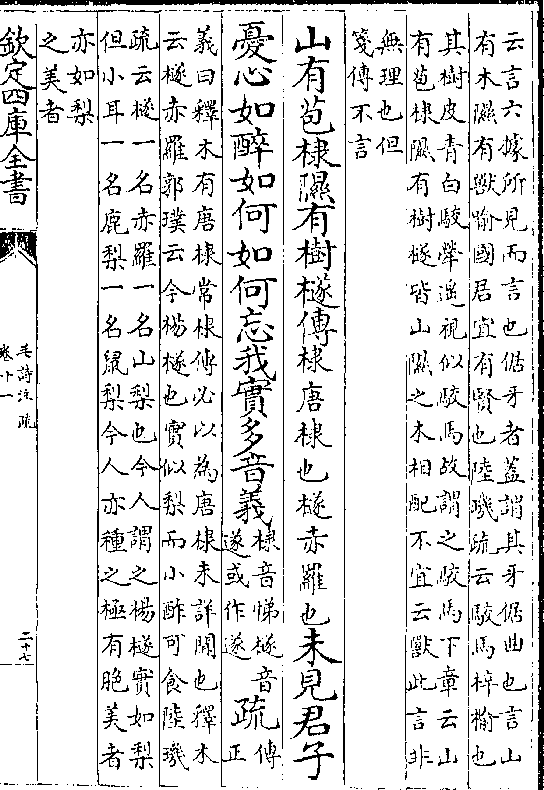 云言六據所見而言也倨牙者蓋謂其牙倨曲也言山
有木隰有獸喻國君宜有賢也陸璣疏云駮馬梓榆也
其樹皮青白駮犖遙視似駮馬故謂之駮馬下章云山
有苞棣隰有樹檖皆山隰之木相配不宜云獸此言非
無理也但
箋傳不言
山有苞棣隰有樹檖傳棣唐棣也檖赤羅也未見君子
憂心如醉如何如何忘我實多音義棣音悌檖音
遂或作遂疏傳
正
義曰釋木有唐棣常棣傳必以為唐棣未詳聞也釋木
云檖赤羅郭璞云今楊檖也實似梨而小酢可食陸璣
疏云檖一名赤羅一名山梨也今人謂之楊檖實如梨
但小耳一名鹿梨一名鼠梨今人亦種之極有脆美者
亦如梨
之美者
欽定四庫全書
毛詩注疏
卷十一
二十七